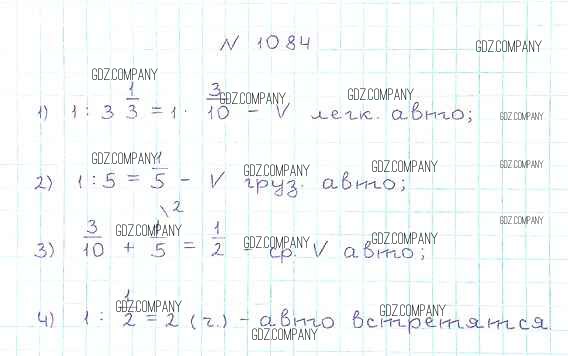 № 1084
GDZ.COMPANY
GDZ.COMPANY
1) 1 : 3 1/3 = 1 · 3/10 - V легк. авто;
GDZ.COMPANY
GDZ.COMPANY
GDZ.COMPANY
2) 1 : 5 = 1/5 - V груз. авто;
GDZ.COMPANY
GDZ.COMPANY
GDZ.COMPANY
GDZ.COMPANY
3) 3/10 + 1/5 \2 = 1/2 - ср. V авто;
GDZ.COMPANY
GDZ.COMPANY
GDZ.COMPANY
GDZ.COMPANY
4) 1 : 1/2 = 2 (ч.) - авто встретятся
GDZ.COMPANY
GDZ.COMPANY
GDZ.COMPANY